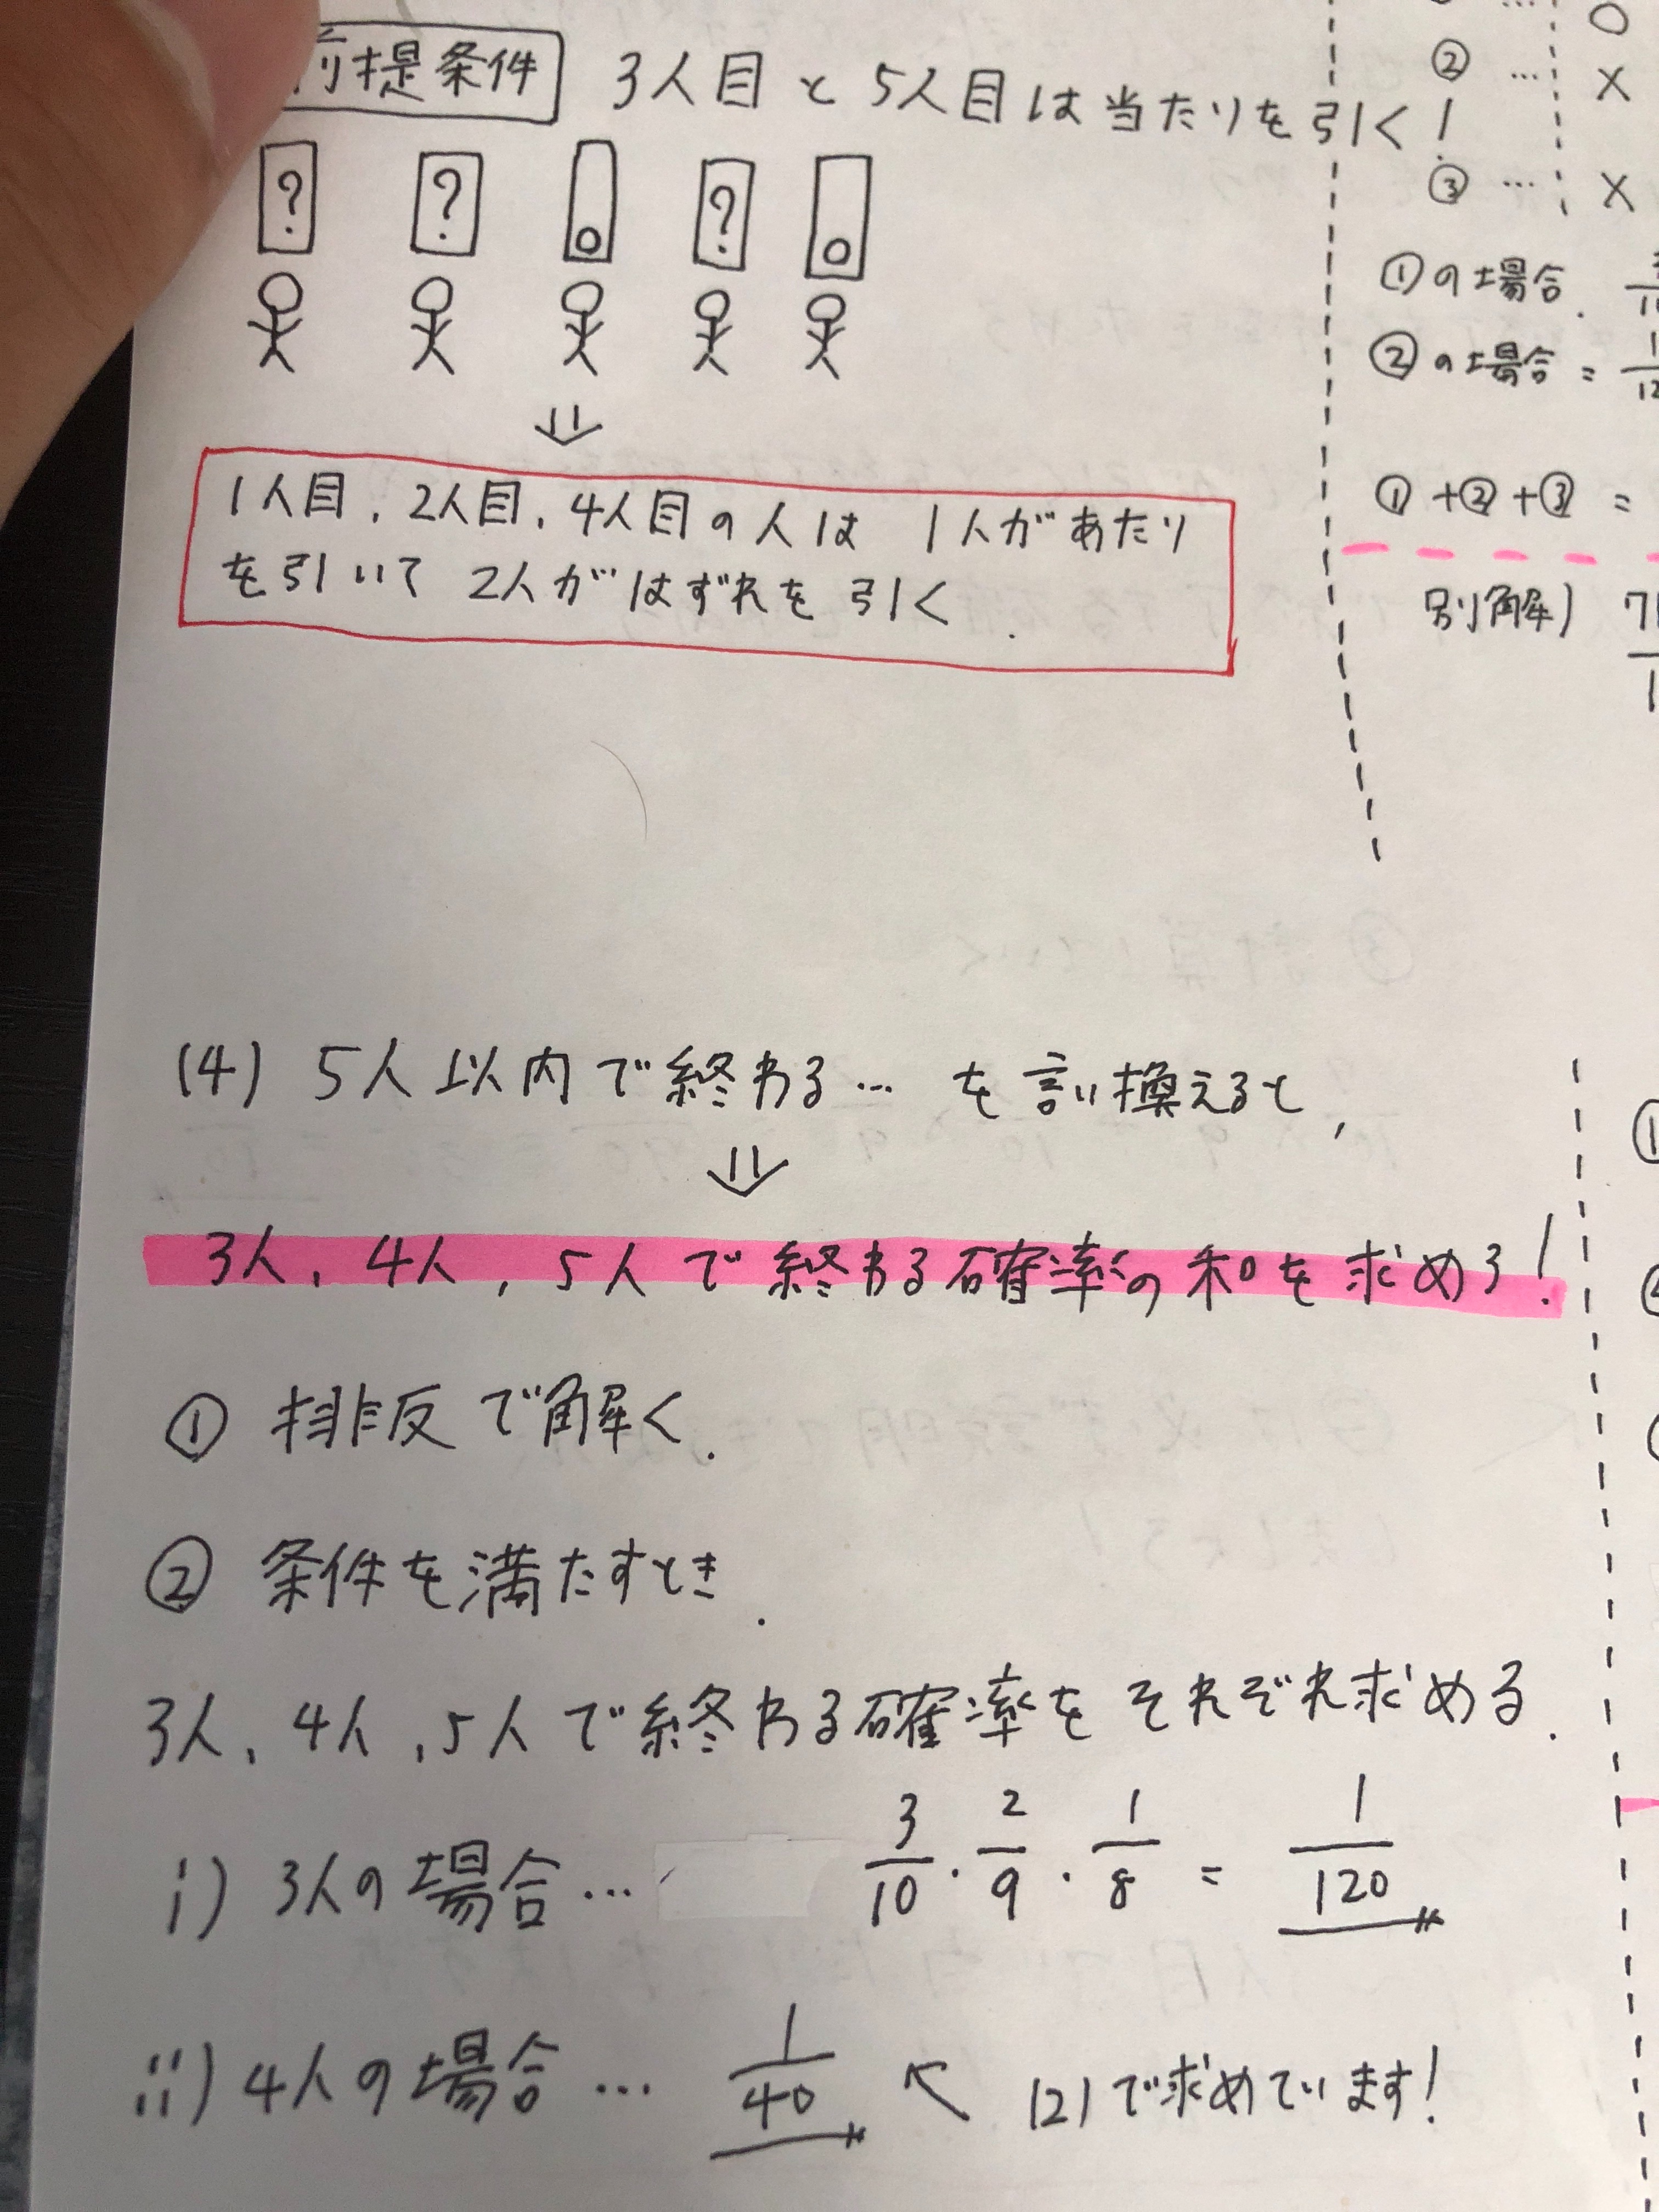 前提条件 3人目と5人目は当たりを引く!
? ? ?
1人目,2人目,4人目の人は 1人があたり
を引いて 2人がはずれを 引く.
(4) 5人以内で終わる… を言い換えると,
3人,4人,5人で終わる確率の和を求めろ!
① 排反で解く.
② 条件を満たすとき.
3人,4人,5人で終わる確率をそれぞれ求める.
i) 3人の場合… 3/10・2/9・1/8 = 1/120
ii) 4人の場合… 1/40 ↖ (2)で求めています!
… ○
② … ×
③ … ×
①の場合.
②の場合 =
①+②+③ =
別解)